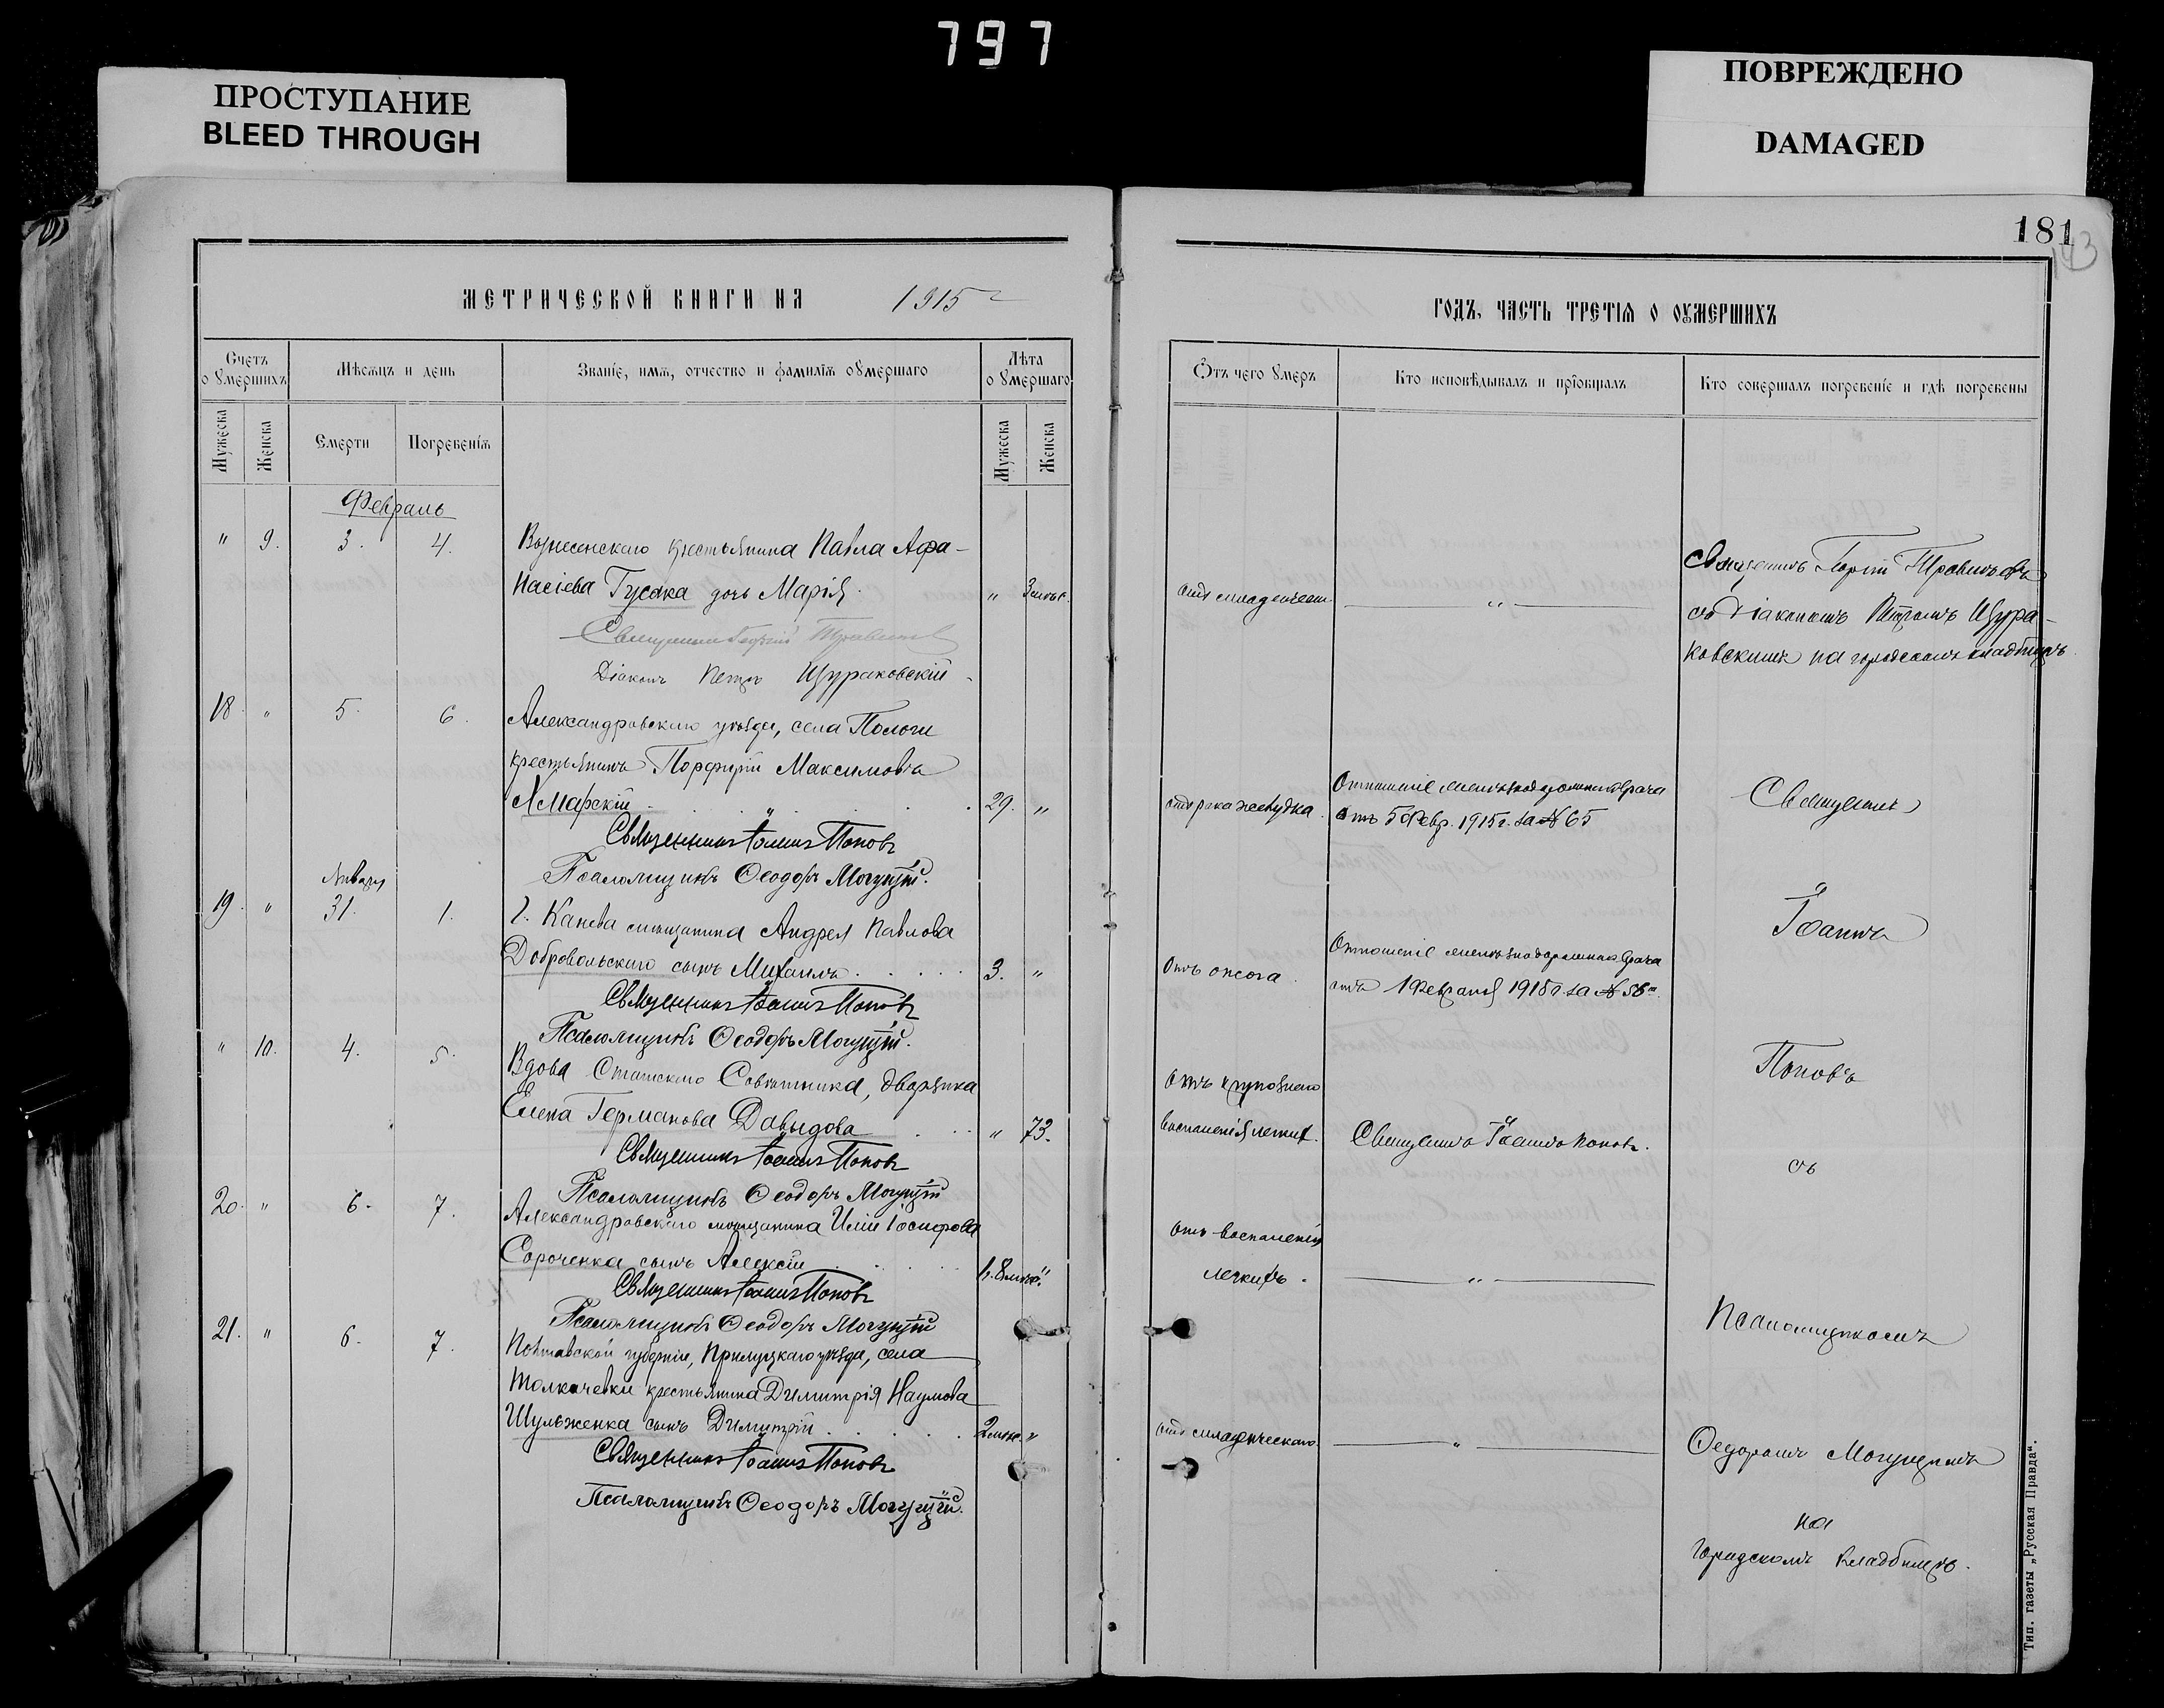 797
ПРОСТУПАНИЕ
BLEED THROUGH
ПОВРЕЖДЕНО
DAMAGED
181
МЕТРИЧЕСКОЙ КНИГИ НА 1915
Счетъ оумершихъ
Мѣсяцъ и день
Званіе, имя, отчество и фамилія оумершаго
Лѣта оумершаго
Мужеска
Женска
Смерти
Погребенія
Мужеска
Женска
Февраль
" 9. 3. 4. Вознесенскаго крестьянина Павла Афа-
насіева Гусака дочь Марія. " 3 мѣс.
Священникъ Георгій
Діаконъ Петръ Щураковскій
18. " 5. 6. Александровскаго уѣзда, села Пологи
крестьянинъ Порфирій Максимовъ
Ямарскій . " . 29. "
Священникъ Іоаннъ Поповъ
Псаломщикъ Ѳеодоръ Могуцкій.
Января
19. " 31. 1. г. Канева мѣщанина Андрея Павлова
Добровольскаго сынъ Михаилъ . . . . . 3. "
Священникъ Іоаннъ Поповъ
Псаломщикъ Ѳеодоръ Могуцкій.
" 10. 4. 5. Вдова Статскаго Совѣтника, дворянка
Елена Германова Давыдова . . . " 73.
Священникъ Іоаннъ Поповъ
Псаломщикъ Ѳеодоръ Могуцкій
20. " 6. 7. Александровскаго мѣщанина Иліи Іосифова
Сороченка сынъ Алексій . . . . . 1. 8 мѣс. "
Священникъ Іоаннъ Поповъ
Псаломщикъ Ѳеодоръ Могуцкій
21. " 6. 7. Полтавской губерніи, Прилуцкаго уѣзда, села
Толкачевки крестьянина Димитрія Наумова
Шульженка сынъ Димитрій . . . . . 2 мѣс. "
Священникъ Іоаннъ Поповъ
Псаломщикъ Ѳеодоръ Могуцкій.
ГОДЪ, ЧАСТЬ ТРЕТІЯ О ОУМЕРШИХЪ
Отъ чего умеръ
Кто исповѣдывалъ и пріобщалъ
Кто совершалъ погребеніе и гдѣ погребены
отъ младенческ. "
Священникъ Георгій
съ діакономъ Петромъ Щура-
ковскимъ на городскомъ кладбищѣ.
отъ рака желудка.
Отношеніе врача
отъ 5 Февр. 1915 г. за № 65
Отъ ожога.
Отношеніе врача
отъ 1 Февраля 1915 г. за № 58
Отъ крупознаго
воспаленія легких.
Священникъ Іоаннъ Поповъ.
Отъ воспаленія
легкихъ. "
отъ младенческаго "
Священникъ
Іоаннъ
Поповъ
съ
Псаломщикомъ
Ѳедоромъ Могуцкимъ
на
Городскомъ кладбищѣ.
Тип. газеты „Русская Правда".